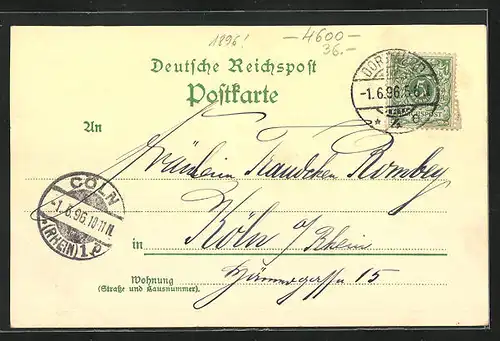 1896!
— 4600 —
36.-
Deutsche Reichspost
Postkarte
DORTMUND
-1.6.96.5-6.N
* 2 e
An
Fräulein Traudchen Rombey
CÖLN
-1.6.96.10-11N.
(RHEIN) 1.P
in Köln a/Rhein
15
Wohnung
(Straße und Hausnummer).